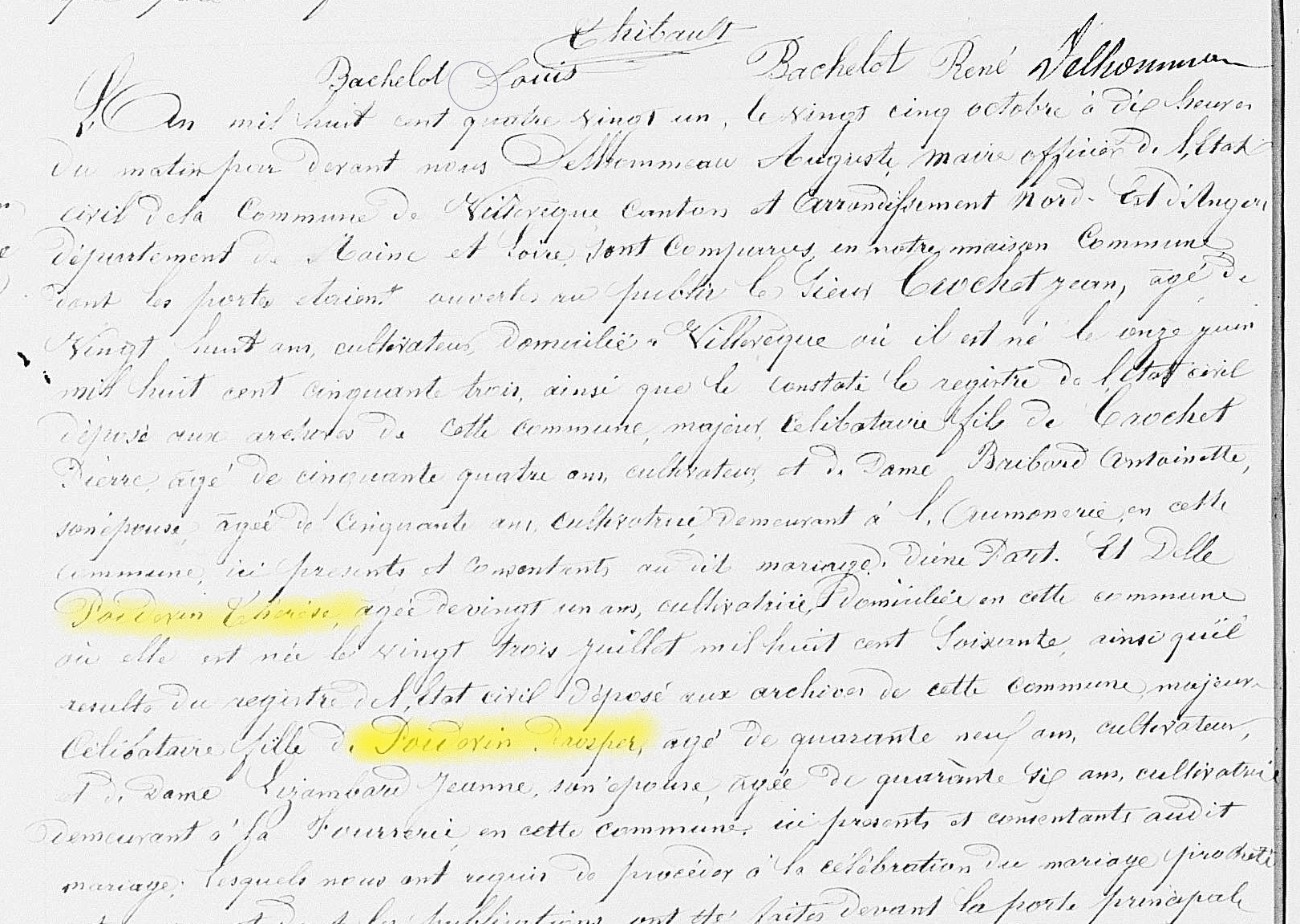 Thibault
Bachelot Louis Bachelot René Delhommeau
L'An mil huit cent quatre vingt un, le vingt cinq octobre à dix heures
du matin par devant nous Delhommeau Auguste, maire officier de l'Etat
civil de la Commune de Villevêque canton et arrondissement Nord-Est d'Angers
département de Maine et Loire, sont comparus en notre maison Commune
dont les portes étaient ouvertes au public le Sieur Crochet Jean, âgé de
vingt huit ans, cultivateur, domicilié à Villevêque où il est né le onze juin
mil huit cent cinquante trois, ainsi que le constate le registre de l'Etat civil
déposé aux archives de cette commune, majeur, célibataire fils de Crochet
Pierre, âgé de cinquante quatre ans, cultivateur, et de Dame Bribard Antoinette,
son épouse, âgée de cinquante ans, cultivatrice, demeurant à l'Aumonerie, en cette
commune, ici présents et consentants au dit mariage, d'une Part. Et Delle
Poidevin Thérèse, âgée de vingt un ans, cultivatrice, domiciliée en cette commune
où elle est née le vingt trois juillet mil huit cent soixante, ainsi qu'il
résulte du registre de l'Etat civil déposé aux archives de cette commune, majeure
Célibataire fille de Poidevin Prosper, âgé de quarante neuf ans, cultivateur,
et de Dame Lizambard Jeanne, son épouse, âgée de quarante six ans, cultivatrice
demeurant à la Fourrerie, en cette commune, ici présents et consentants audit
mariage; lesquels nous ont requis de procéder à la célébration du mariage projeté
publications ont été faites devant la porte principale